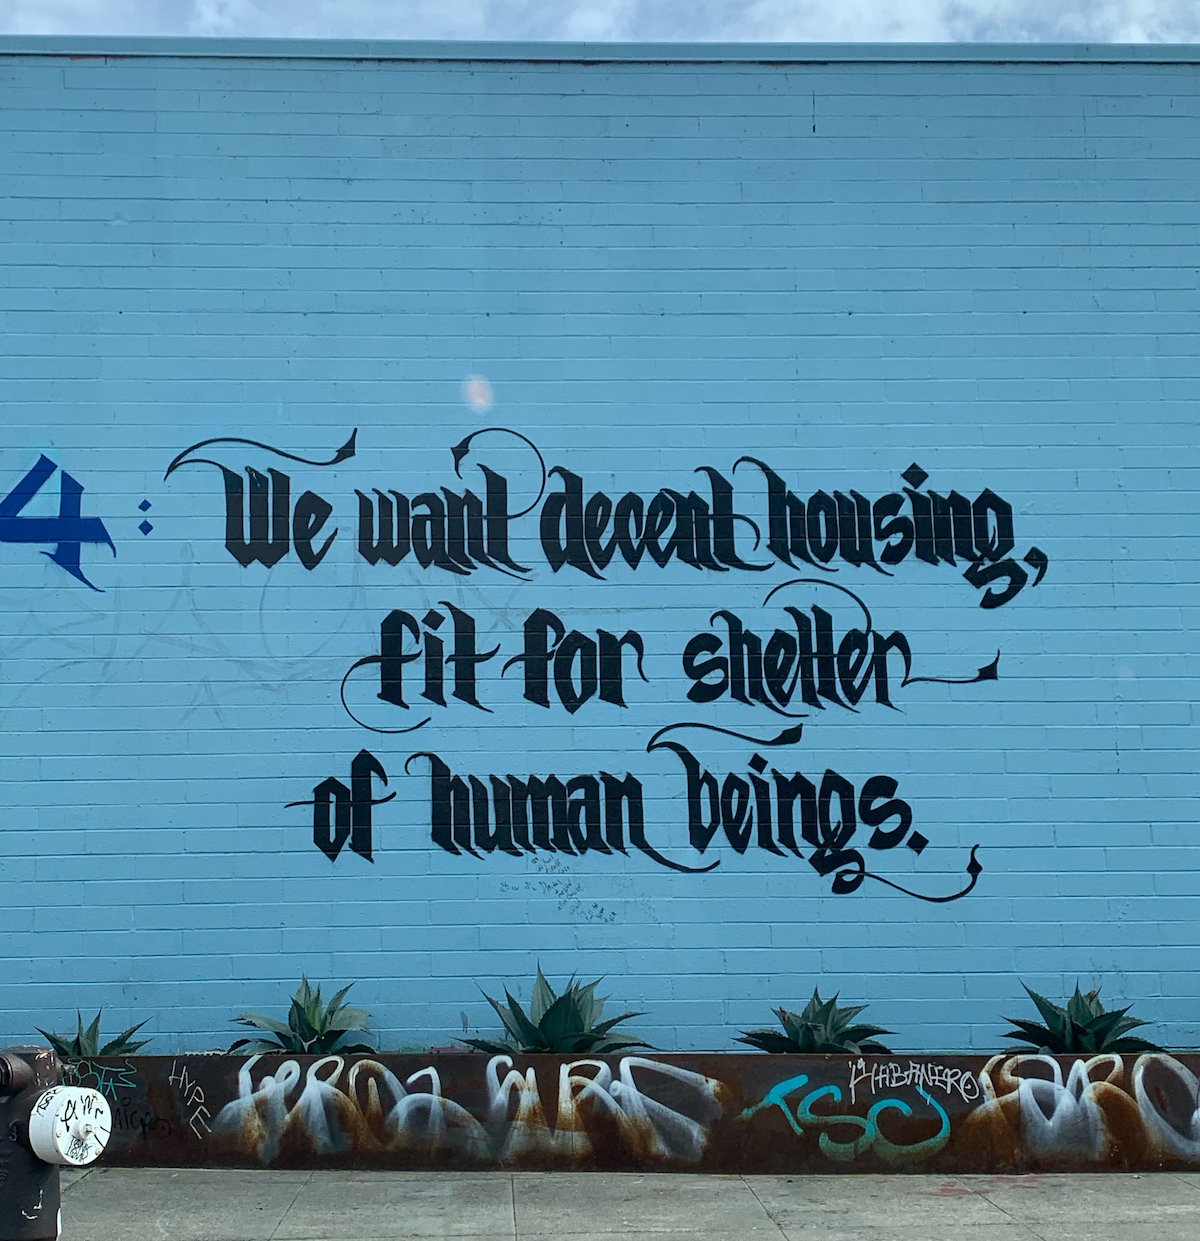 4: We want decent housing,
fit for shelter
of human beings.
HYPE
TSO
HABANERO